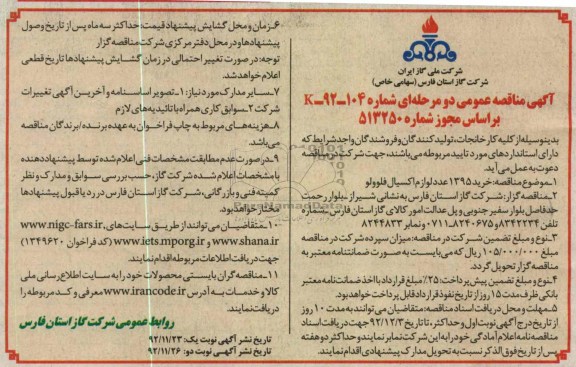 شرکت ملی گاز ایران
شرکت گاز استان فارس (سهامی خاص)
آگهی مناقصه عمومی دو مرحله‌ای شماره ۱۰۴-۹۲-K
بر اساس مجوز شماره ۵۱۳۲۵۰
بدینوسیله از کلیه کارخانجات، تولیدکنندگان و فروشندگان واجد شرایط که
دارای استانداردهای مورد تایید مربوطه می‌باشند، جهت شرکت در مناقصه
دعوت به عمل می‌آید.
۱-موضوع مناقصه: خرید ۱۳۹۵ عدد لوازم اکسیال فلوولو
۲-مناقصه گزار: شرکت گاز استان فارس به نشانی شیراز-بلوار رحمت
حدفاصل بلوار سفیر جنوبی و پل عدالت امور کالای گاز استان فارس-شماره
تلفن ۸۳۴۲۲۳۴ و ۸۲۴۰۶۷۵-۰۷۱۱ و نمابر ۸۲۴۴۸۳۳
۳-نوع و مبلغ تضمین شرکت در مناقصه: میزان سپرده شرکت در مناقصه
مبلغ ۱۰۵/۰۰۰/۰۰۰ ریال که می‌بایست به صورت ضمانتنامه معتبر به
مناقصه گزار تحویل گردد.
۴-نوع و مبلغ تضمین پیش پرداخت: ۲۵٪ مبلغ قرارداد با اخذ ضمانت نامه معتبر
بانکی ظرف مدت ۱۵ روز از تاریخ نفوذ قرارداد قابل پرداخت خواهد بود.
۵-مهلت و محل دریافت اسناد مناقصه: متقاضیان می‌توانند به مدت ۱۰ روز
از تاریخ درج آگهی نوبت اول و حداکثر تا تاریخ ۹۲/۱۲/۳ جهت دریافت اسناد
مناقصه نامه اعلام آمادگی خود را به این شرکت نمابر نمایند و حداکثر دو هفته
پس از تاریخ فوق الذکر نسبت به تحویل مدارک پیشنهادی اقدام نمایند.
۶-زمان و محل گشایش پیشنهاد قیمت: حداکثر سه ماه پس از تاریخ وصول
پیشنهادها و در محل دفتر مرکزی شرکت مناقصه گزار
توجه: در صورت تغییر احتمالی در زمان گشایش پیشنهادها تاریخ قطعی
اعلام خواهد شد.
۷-سایر مدارک مورد نیاز: ۱-تصویر اساسنامه و آخرین آگهی تغییرات
شرکت ۲-سوابق کاری همراه با تائیدیه‌های لازم
۸-هزینه‌های مربوط به چاپ فراخوان به عهده برنده/برندگان مناقصه
می‌باشد.
۹-در صورت عدم مطابقت مشخصات فنی اعلام شده توسط پیشنهاد دهنده
با مشخصات اعلام شده شرکت گاز، حسب بررسی سوابق و مدارک و نظر
کمیته فنی و بازرگانی، شرکت گاز استان فارس در رد یا قبول پیشنهادها
مختار خواهد بود.
۱۰-متقاضیان می‌توانند از طریق سایت‌های، www.nigc-fars.ir
www.shana.ir و www.iets.mporg.ir (کد فراخوان ۱۳۴۹۶۲۰)
جهت دریافت اطلاعات مربوطه اقدام نمایند.
۱۱-مناقصه گران بایستی محصولات خود را به سایت اطلاع رسانی ملی
کالا و خدمات به آدرس www.irancode.ir معرفی و کد مربوطه را
دریافت نمایند.
روابط عمومی شرکت گاز استان فارس
تاریخ نشر آگهی نوبت یک: ۹۲/۱۱/۲۳
تاریخ نشر آگهی نوبت دو: ۹۲/۱۱/۲۶